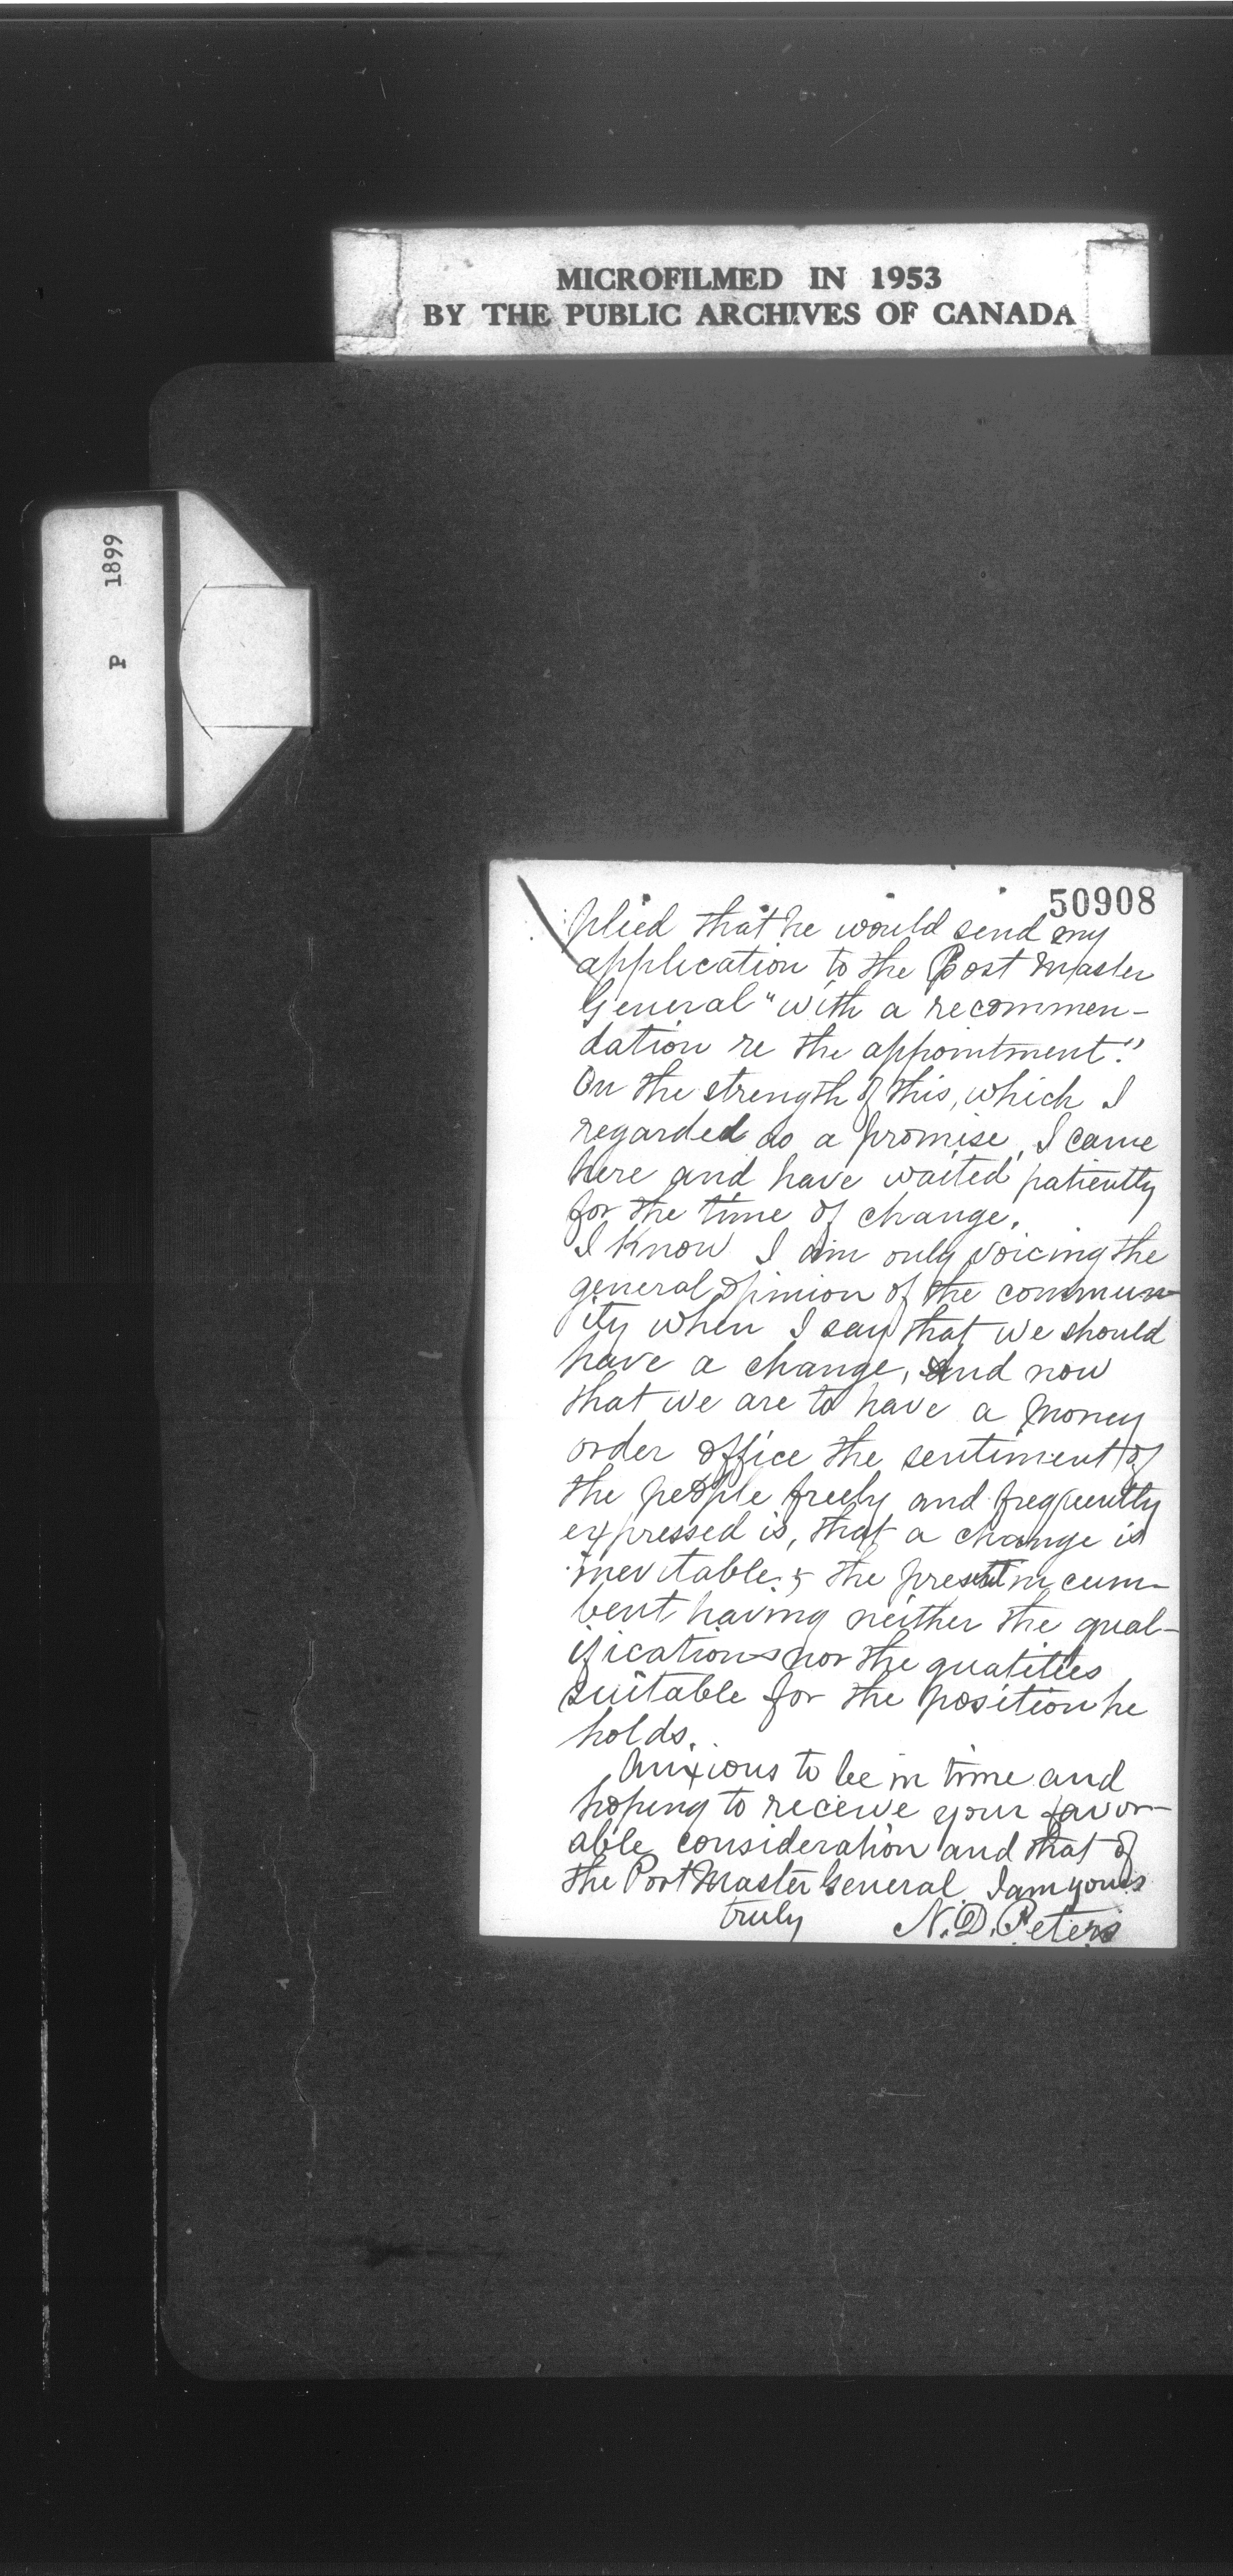 MICROFILMED IN 1953
BY THE PUBLIC ARCHIVES OF CANADA
P 1899
50908
plied that he would send my
application to the Post Master
General "with a recommen-
dation re the appointment."
On the strength of this, which I
regarded as a promise, I came
here and have waited patiently
for the time of change.
I know I am only voicing the
general opinion of the commun-
ity when I say that we should
have a change, and now
that we are to have a money
order office the sentiment of
the people freely and frequently
expressed is, that a change is
inevitable; the present incum-
bent having neither the qual-
ifications nor the qualities
suitable for the position he
holds.
Anxious to be in time and
hoping to receive your favor-
able consideration and that of
the Post Master General I am yours
truly N. D. Peters